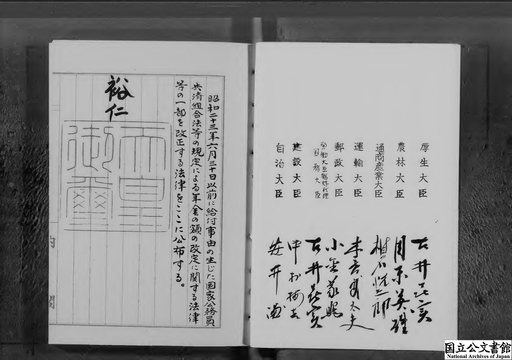 厚生大臣 古井喜實
農林大臣 周東英雄
通商産業大臣 椎名悦三郎
運輸大臣 木暮武太夫
郵政大臣 小金義照
労働大臣臨時代理
大臣 古井喜實
建設大臣 中村梅吉
自治大臣 安井謙
昭和二十三年六月三十日以前に給付事由の生じた国家公務員
共済組合法等の規定による年金の額の改定に関する法律
等の一部を改正する法律をここに公布する。
裕仁
天皇
御璽
国立公文書館
National Archives of Japan